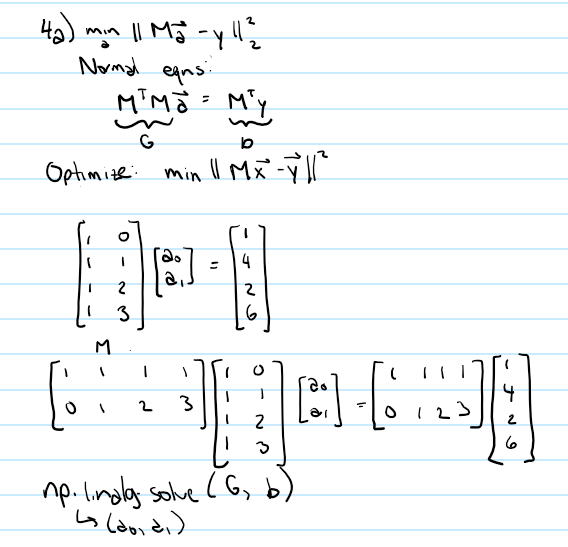 4a) min ‖ Ma⃗ - y ‖₂²
a
Normal eqns:
MᵀMa⃗ = Mᵀy
G b
Optimize: min ‖ Mx⃗ - y⃗ ‖²
[1 0; 1 1; 1 2; 1 3] [a₀; a₁] = [1; 4; 2; 6]
M
[1 1 1 1; 0 1 2 3] [1 0; 1 1; 1 2; 1 3] [a₀; a₁] = [1 1 1 1; 0 1 2 3] [1; 4; 2; 6]
np.linalg.solve (G, b)
↳ (a₀, a₁)